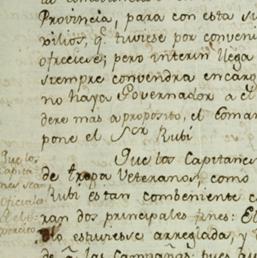 Provincia, para con esta su
vilios, q. tuviese por conveni
ofreciese; pero interin llega
siempre convendra encarg
no haya Governador a el
dere mas aproposito, el coman
pone el Sor Rubí
Que los Capitanes
de tropa Veteranos, como
Rubi estan combeniente c
ran dos principales fines: El
estuviese arreglada, y
Que los
Capita
nes sea
Oficiale